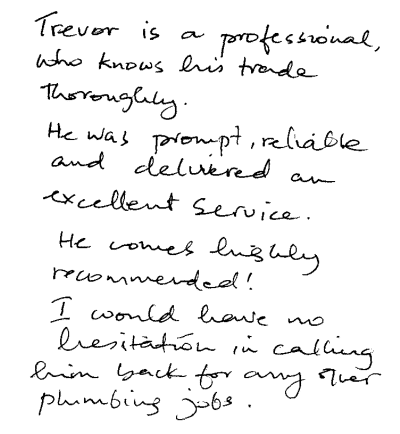 Trevor is a professional,
who knows his trade
thoroughly.
He was prompt, reliable
and delivered an
excellent service.
He comes highly
recommended!
I would have no
hesitation in calling
him back for any other
plumbing jobs.